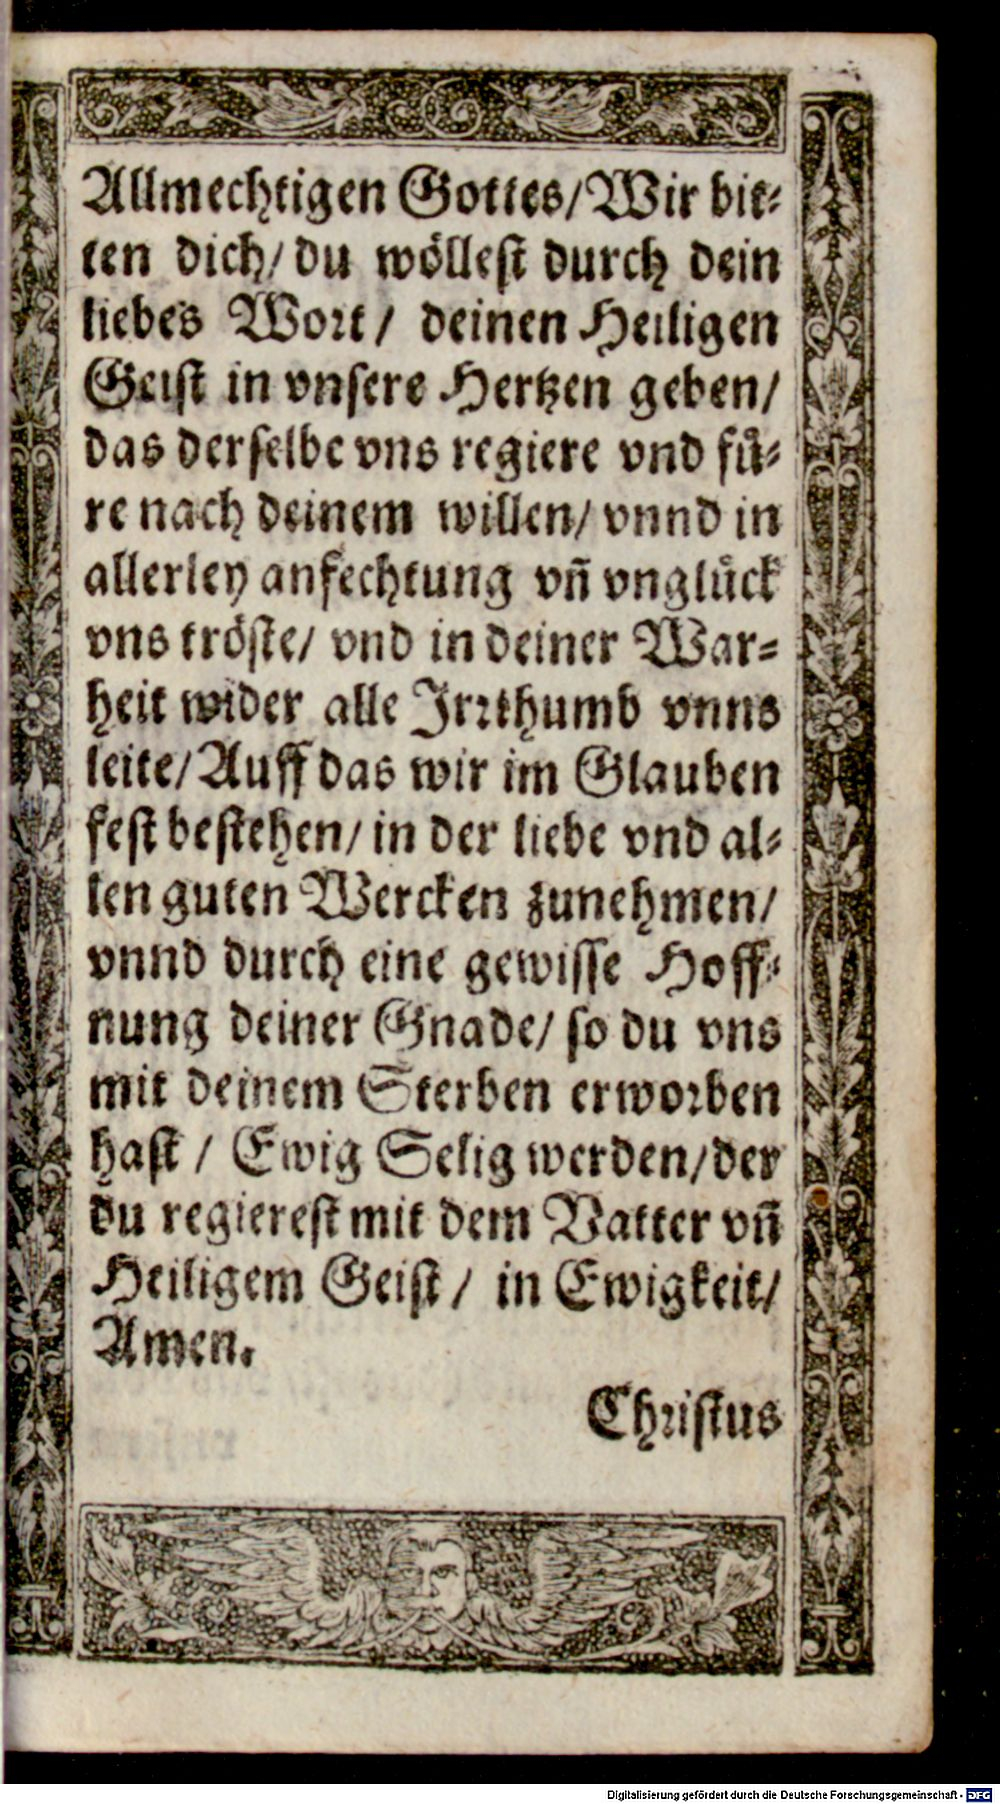 Allmechtigen Gottes/Wir bit⸗
ten dich/ du wöllest durch dein
liebes Wort/ deinen Heiligen
Geist in vnsere Hertzen geben/
das derselbe vns regiere vnd fuͤ⸗
re nach deinem willen/ vnnd in
allerley anfechtung vñ vngluͤck
vns tröste/ vnd in deiner War⸗
heit wider alle Irrthumb vnns
leite/Auff das wir im Glauben
fest bestehen/ in der liebe vnd al⸗
len guten Wercken zunehmen/
vnnd durch eine gewisse Hoff⸗
nung deiner Gnade/ so du vns
mit deinem Sterben erworben
hast / Ewig Selig werden/der
du regierest mit dem Vatter vñ
Heiligem Geist / in Ewigkeit/
Amen.
Christus
Digitalisierung gefördert durch die Deutsche Forschungsgemeinschaft - DFG